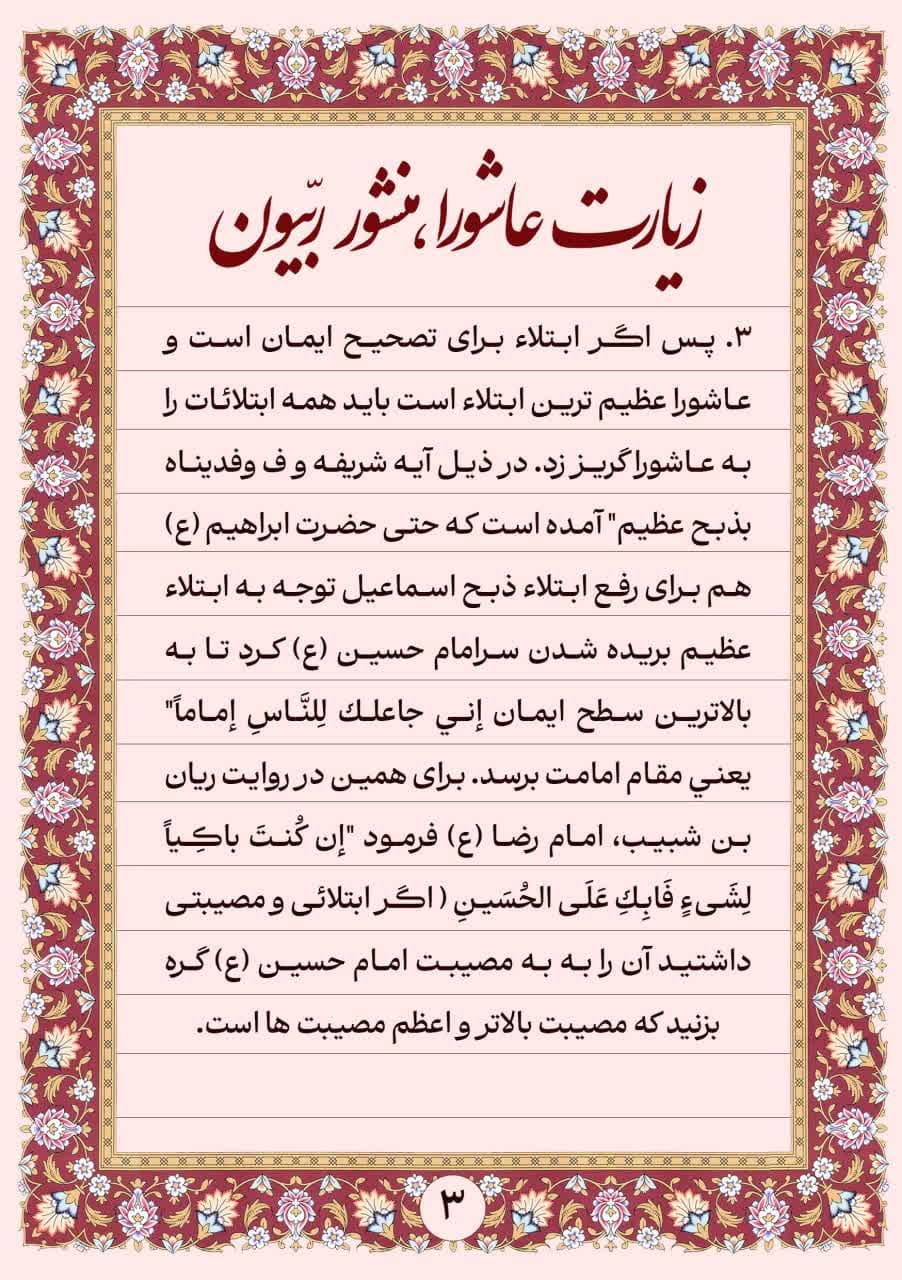 زیارت عاشورا، منشور ربّیون
۳. پس اگر ابتلاء برای تصحیح ایمان است و
عاشورا عظیم ترین ابتلاء است باید همه ابتلائات را
به عاشورا گریز زد. در ذیل آیه شریفه و ف وفدیناه
بذبح عظیم" آمده است که حتی حضرت ابراهیم (ع)
هم برای رفع ابتلاء ذبح اسماعیل توجه به ابتلاء
عظیم بریده شدن سرامام حسین (ع) کرد تا به
بالاترین سطح ایمان إني جاعلك لِلنَّاسِ إماماً"
یعني مقام امامت برسد. برای همین در روایت ریان
بن شبیب، امام رضا (ع) فرمود "إن كُنتَ باكِياً
لِشَیءٍ فَابِكِ عَلَى الحُسَينِ ( اگر ابتلائی و مصیبتی
داشتید آن را به به مصیبت امام حسین (ع) گره
بزنید که مصیبت بالاتر و اعظم مصیبت ها است.
۳